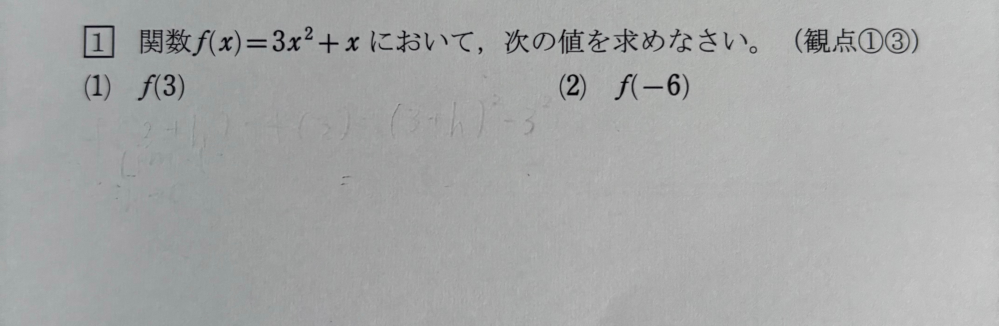 1 関数f(x)=3x²+x において，次の値を求めなさい。（観点①③）
(1) f(3) (2) f(−6)
(3+h)²−3²
=